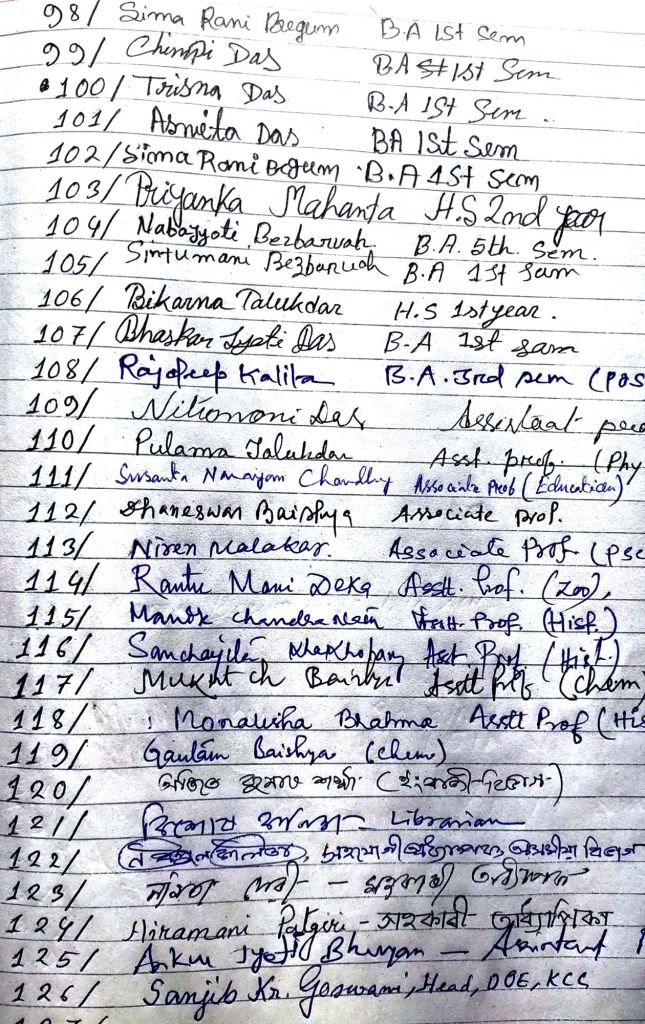 98/ Sima Rani Begum B.A 1St Sem
99/ Chimpi Das BA 1st Sem
100/ Trisna Das B.A 1St Sem.
101/ Asmita Das BA 1St Sem
102/ Sima Rani Begum B.A 1St Sem
103/ Priyanka Mahanta H.S 2nd year
104/ Nabajyoti Bezbaruah. B.A. 5th. Sem.
105/ Sintumani Bezbaruah B.A 1st sam
106/ Bikarna Talukdar H.S 1st year.
107/ Bhaskar Jyoti Das B.A 1st sam
108/ Rajdeep Kalita B.A. 3rd sem (POS
109/ Das
110/ Talukdar Asst. prof. (Phy
111/ Susanta Narayan Choudhury Associate Prof (Education)
112/ Dhaneswar Baishya Associate prof.
113/ Niren Malakar. Associate Prof (PSc
114/ Rantu Mani Deka Asstt. Prof. (Zoo),
115/ Chandra Asstt. Prof. (Hist.)
116/ Sanchayita Asst Prof (Hist.)
117/ Mukut ch Asstt Prof (Chem)
118/ Monalisha Brahma Asstt Prof (His
119/ Gautam Baishya (Chem)
120/ কুমাৰ শৰ্মা (ইংৰাজী বিভাগ)
121/ Librarian
122/ অসমীয়া বিভাগ
123/ দেৱী –
124/ Hiramani Patgiri - সহকাৰী অধ্যাপিকা
125/ Ankur Jyoti Bhuyan — Assistant
126/ Sanjib Kr. Goswami, Head, DOE, KCG